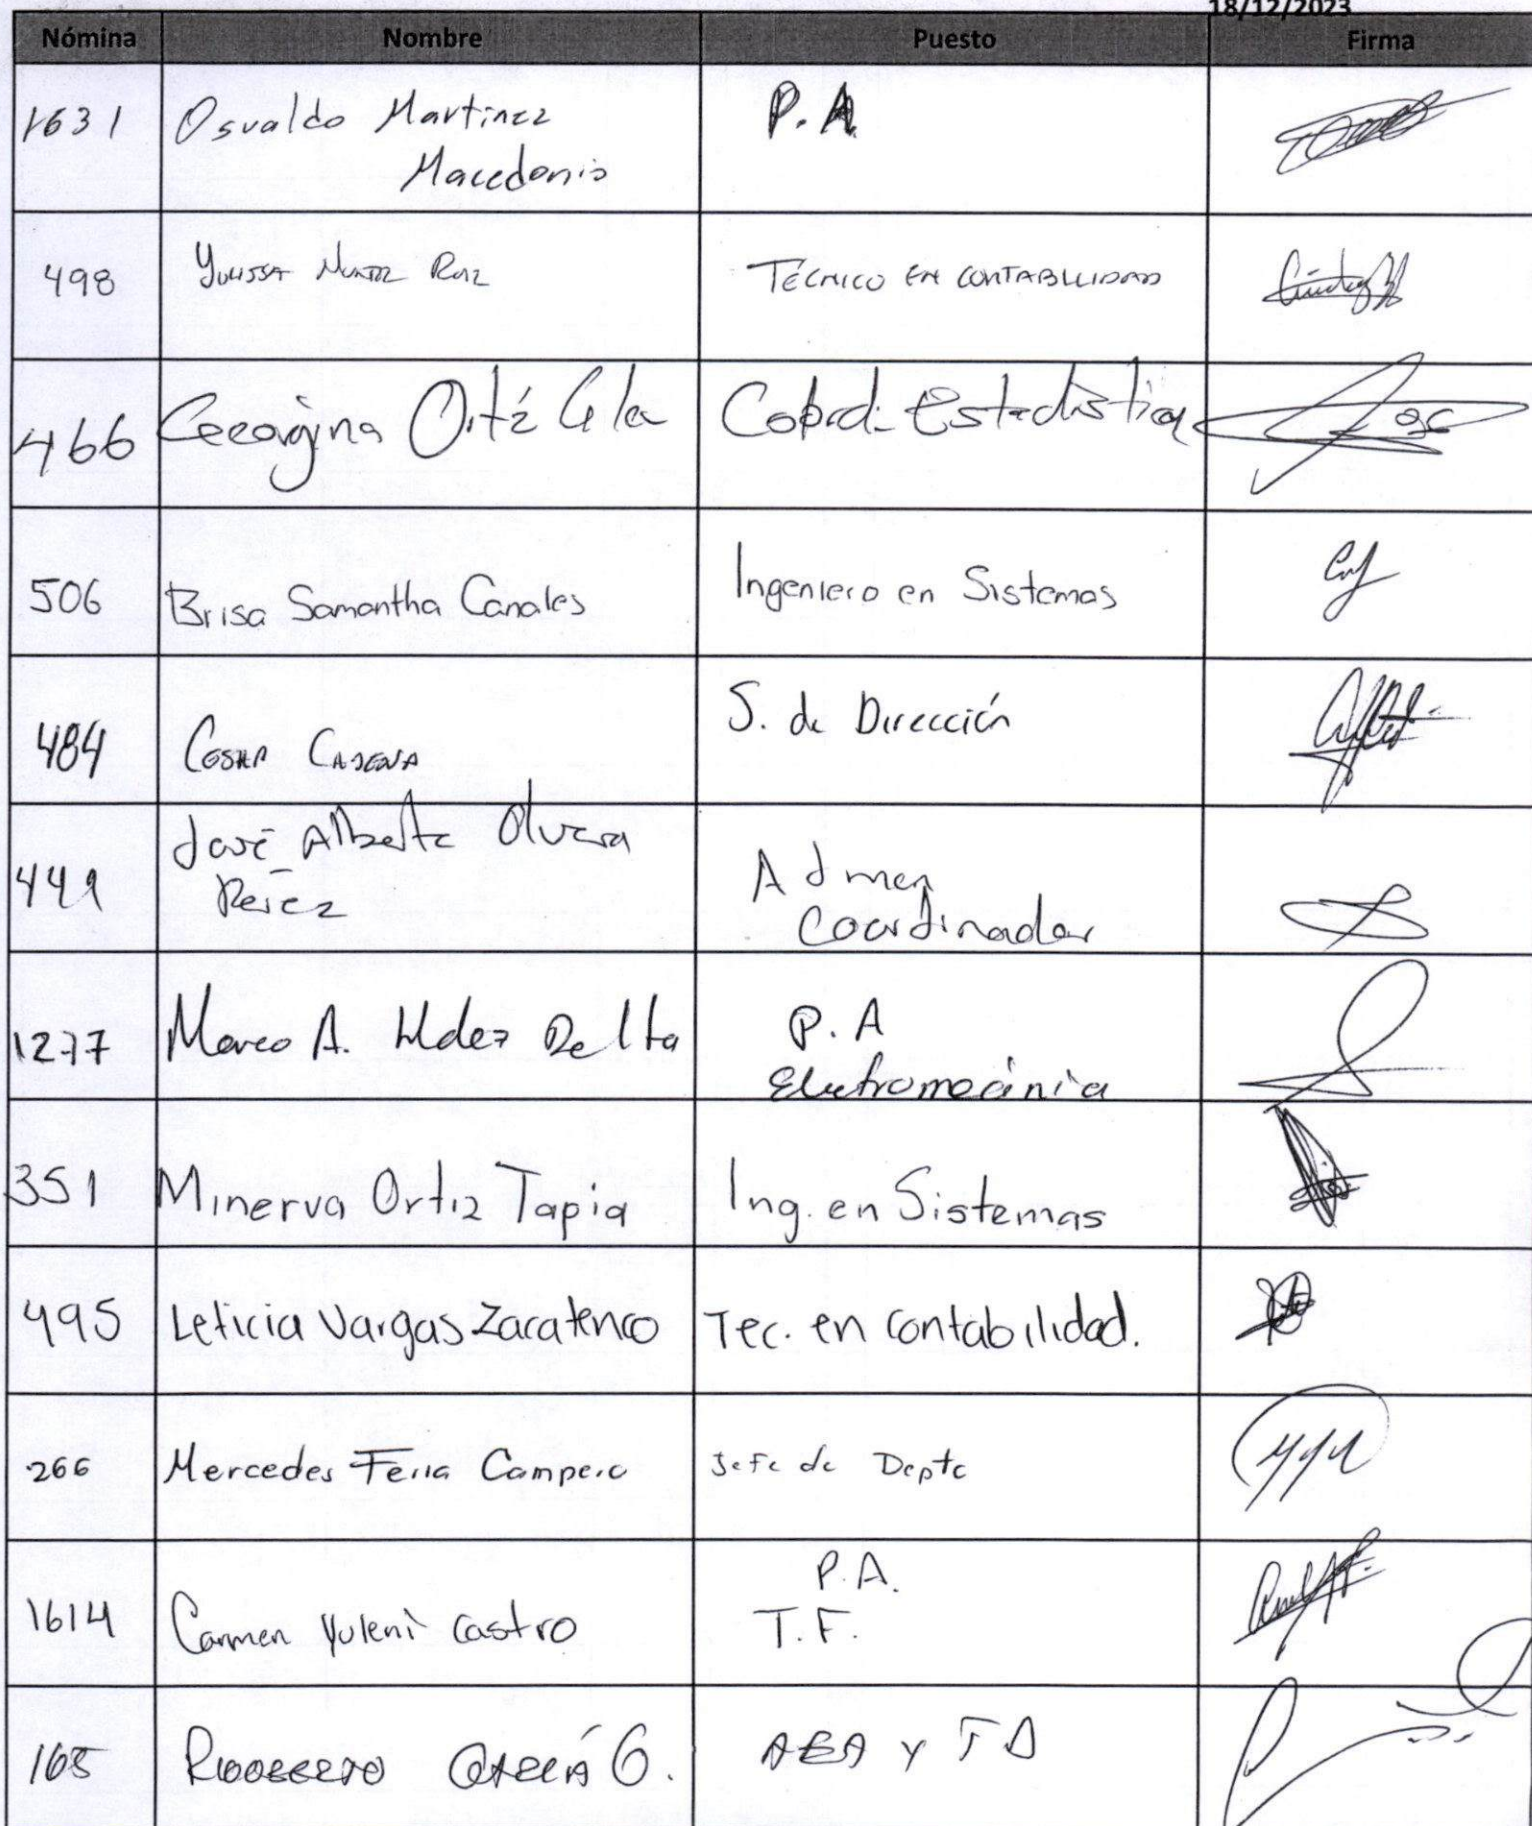 18/12/2023
Nómina Nombre Puesto Firma
1631 Osvaldo Martinez P.A.
Macedonio
498 Ruiz TÉCNICO EN CONTABILIDAD
466 Georgina Ortíz Estadistica
506 Brisa Samantha Canales Ingeniero en Sistemas
484 CESAR CADENA S. de Dirección
José Alberto Olvera
Pérez Admon
Coordinador
1277 Marco A. Hdez P.A
Electromecánica
351 Minerva Ortiz Tapia Ing. en Sistemas
495 Leticia Vargas Zacatenco Tec. en contabilidad.
266 Mercedes Feria Campero Jefe de Depto
1614 Carmen Yuleni Castro P.A.
T.F.
165 GARCÍA G. Y